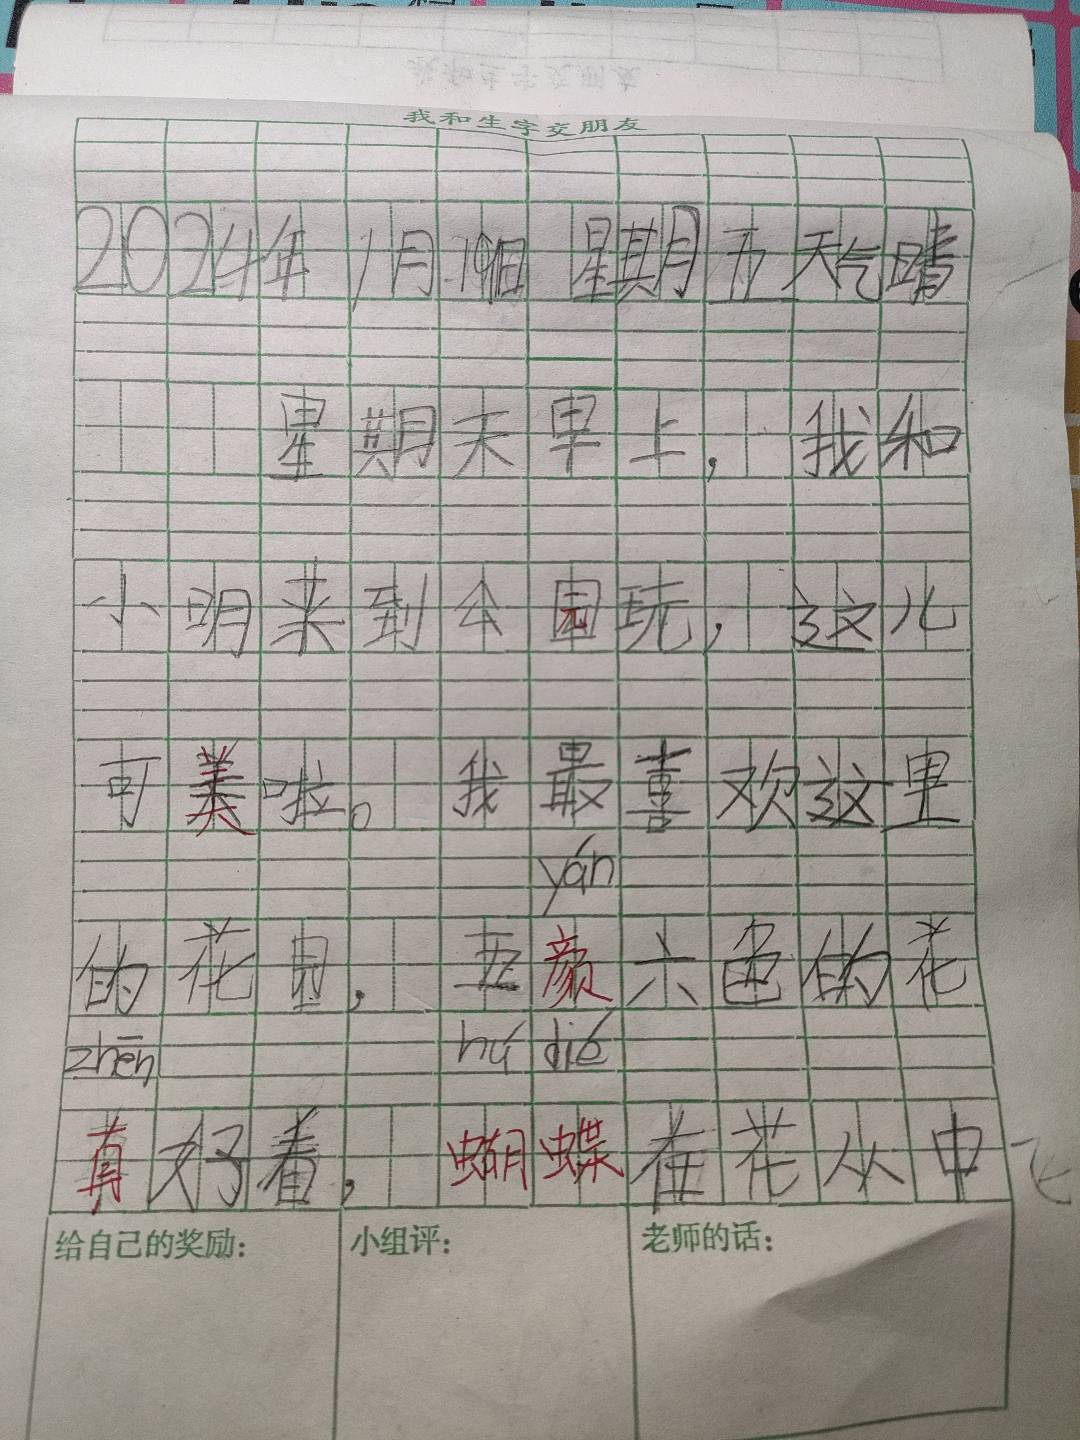 我和生字交朋友
2024年1月19日 星期五 天气晴
星期天早上，我和
小明来到公园玩，这儿
可美啦。我最喜欢这里
yán
的花园，五颜六色的花
zhēn hú dié
真好看，蝴蝶在花从中飞
给自己的奖励： 小组评： 老师的话：